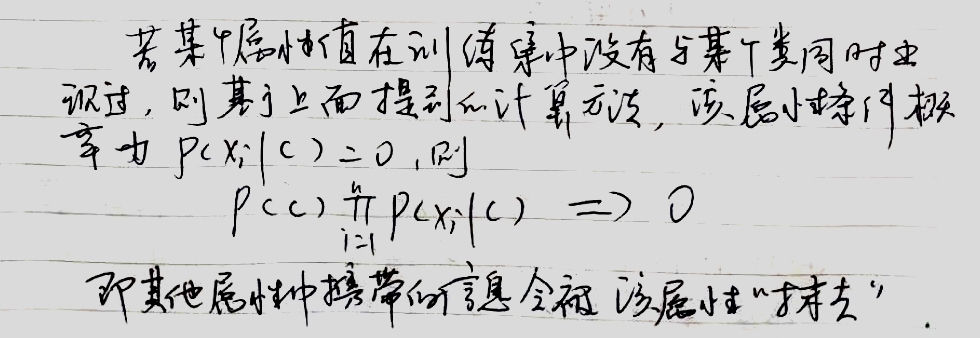 若某个属性值在训练集中没有与某个类同时出
现过，则基于上面提到的计算方法，该属性条件概
率为 P(xᵢ|c)=0，则
P(c) ∏ⁿᵢ₌₁ P(xᵢ|c) => 0
即其他属性中携带的信息会被该属性"抹去"．